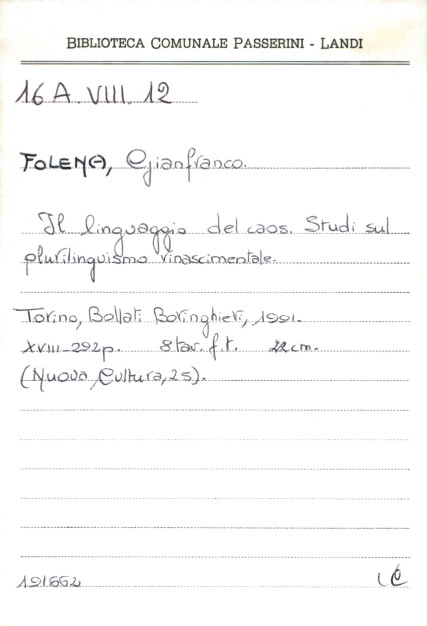 BIBLIOTECA COMUNALE PASSERINI - LANDI
16 A. VIII. 12
FOLENA, Gianfranco.
Il linguaggio del caos. Studi sul
plurilinguismo rinascimentale.
Torino, Bollati Boringhieri, 1991.
XVIII-292p. 8 tav. f.t. 22cm.
(Nuova Cultura, 25).
191662